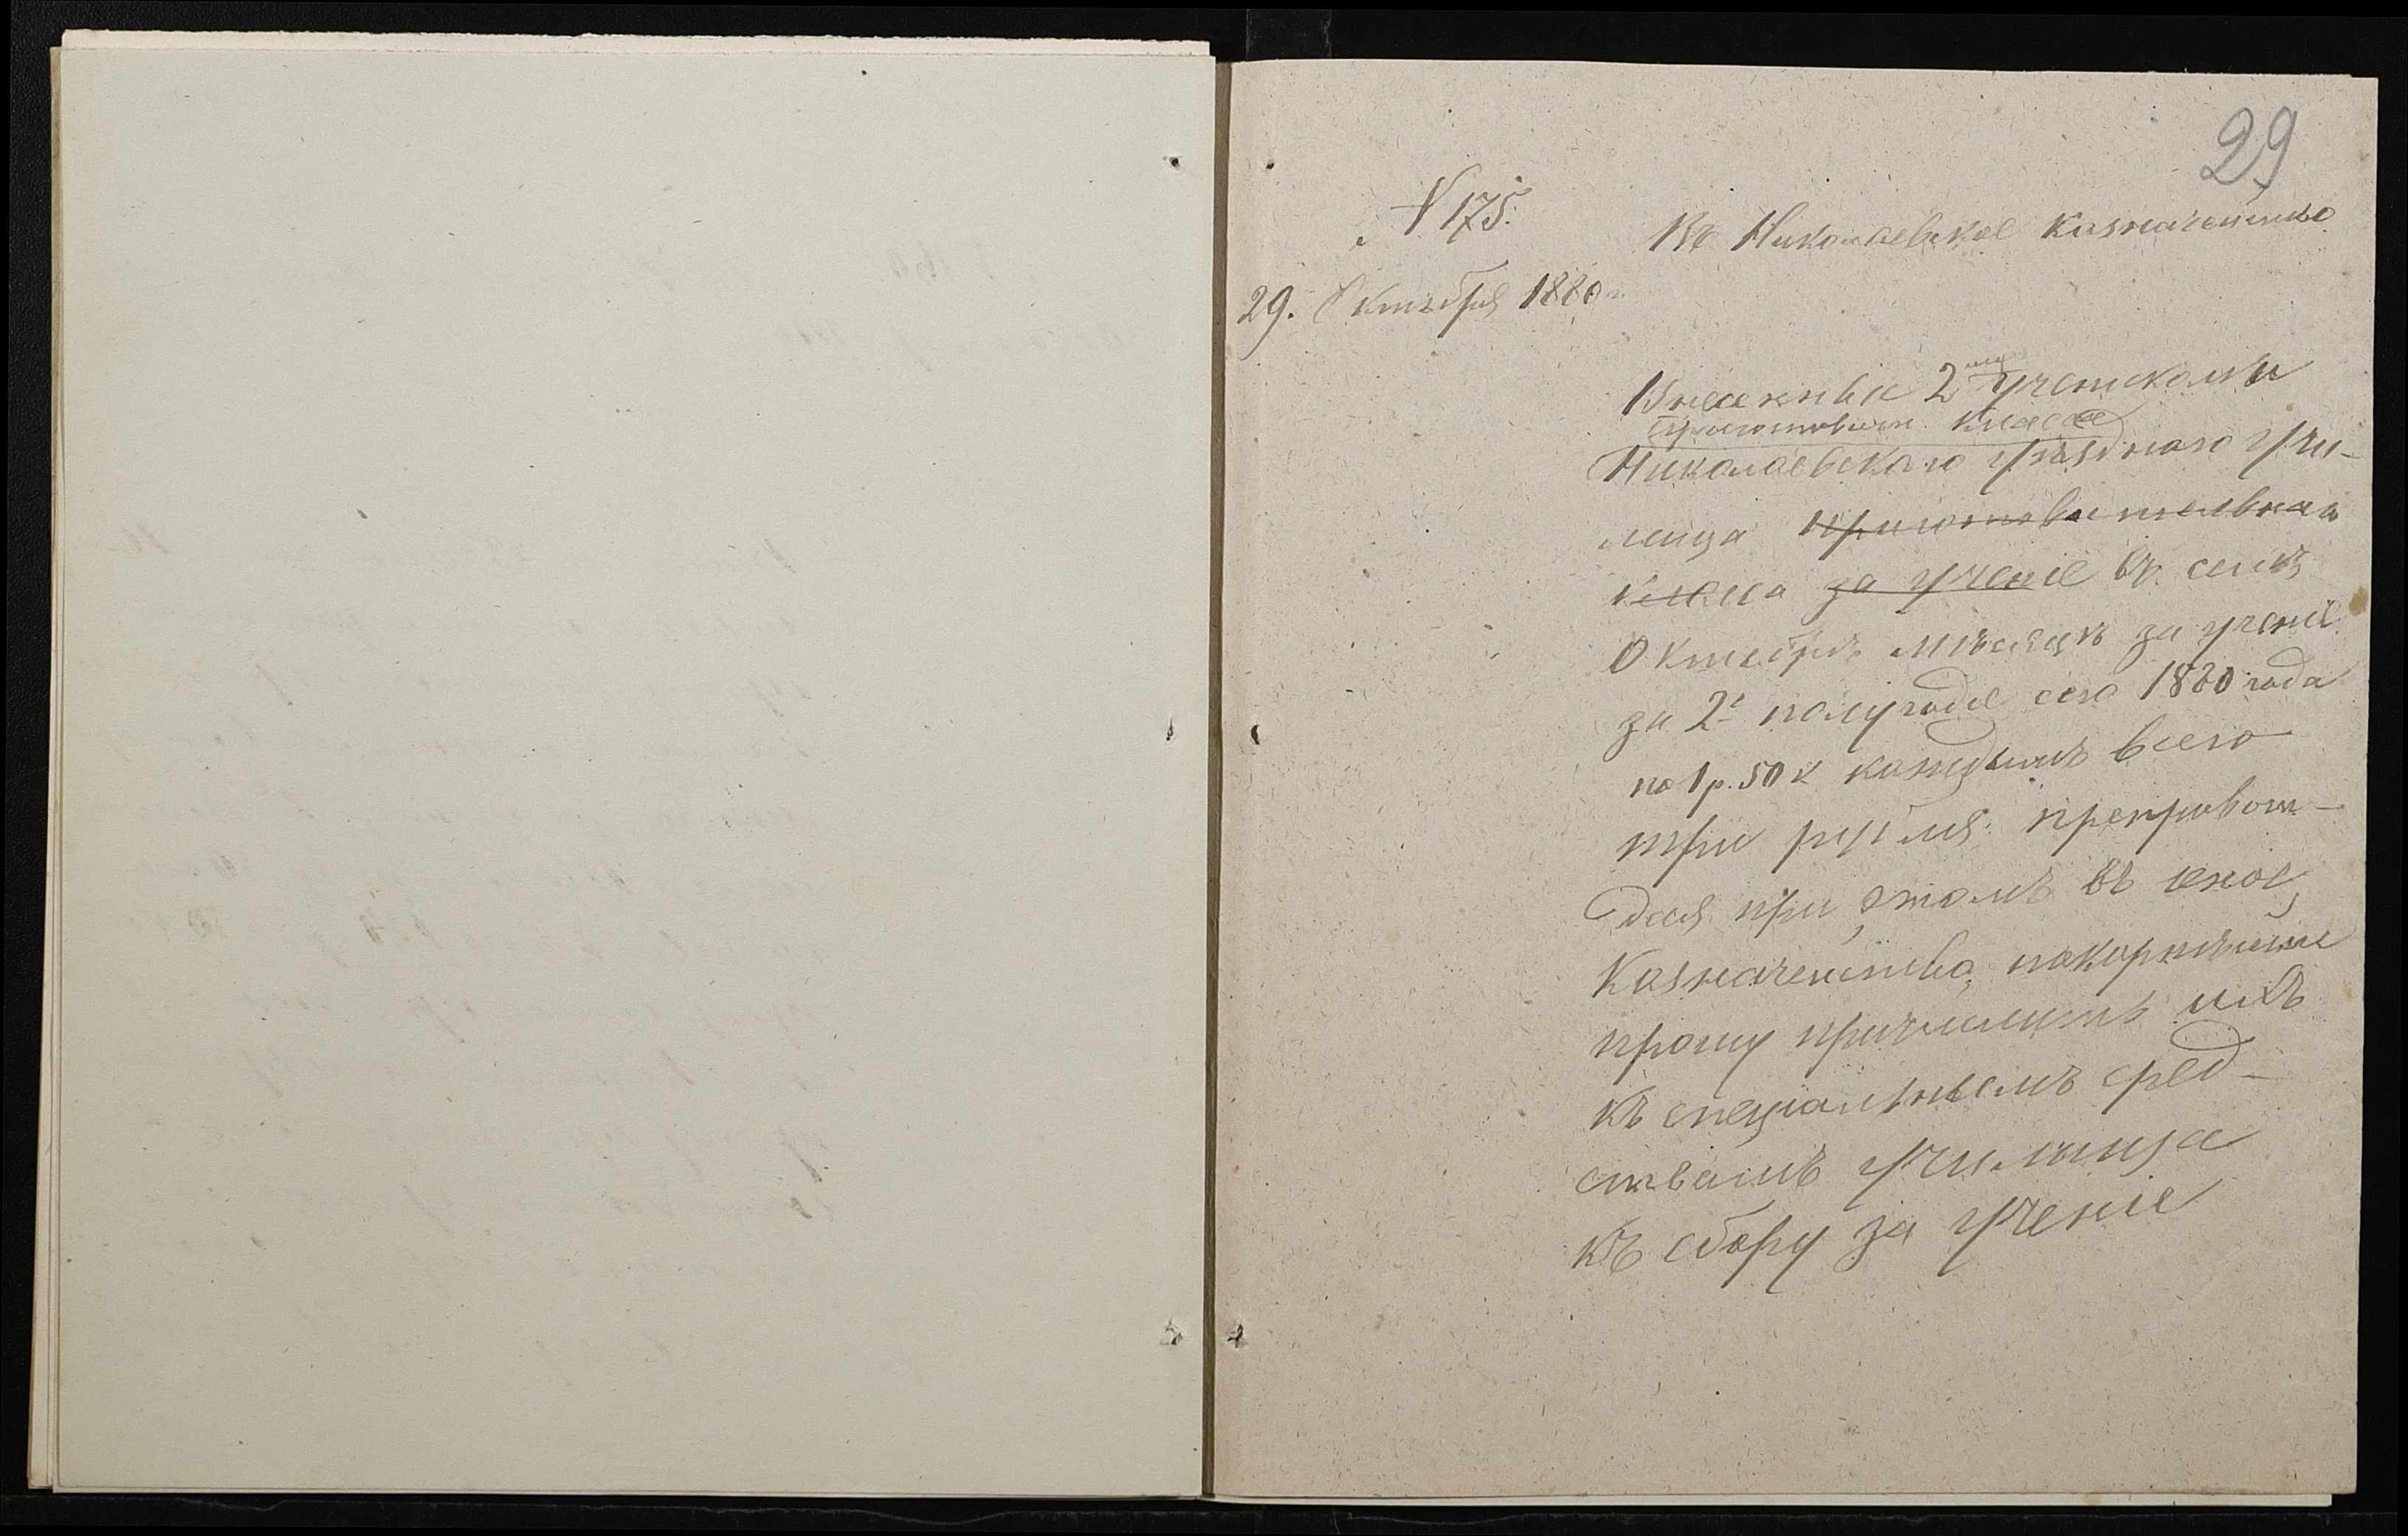 29
N 175.
Въ Николаевское Казначейство
29. Октября 1880 г.
Внесенныя 2мя учениками
приготовит. класса
Николаевскаго уѣзднаго учи-
лища приготовительнаго
класса за ученіе въ семъ
Октябрѣ мѣсяцѣ за ученіе
за 2е полугодіе сего 1880 года
по 1 р. 50 к каждымъ всего
три рубля препровож-
дая при этомъ въ оное
Казначейство, покорнѣйше
прошу причислить ихъ
къ спеціальнымъ сред-
ствамъ училища
къ сбору за ученіе